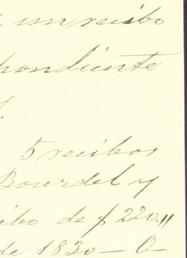 un recibo
pondiente
5 recibos
Bourdel y
ibo de p 220."
de 1830 - O-